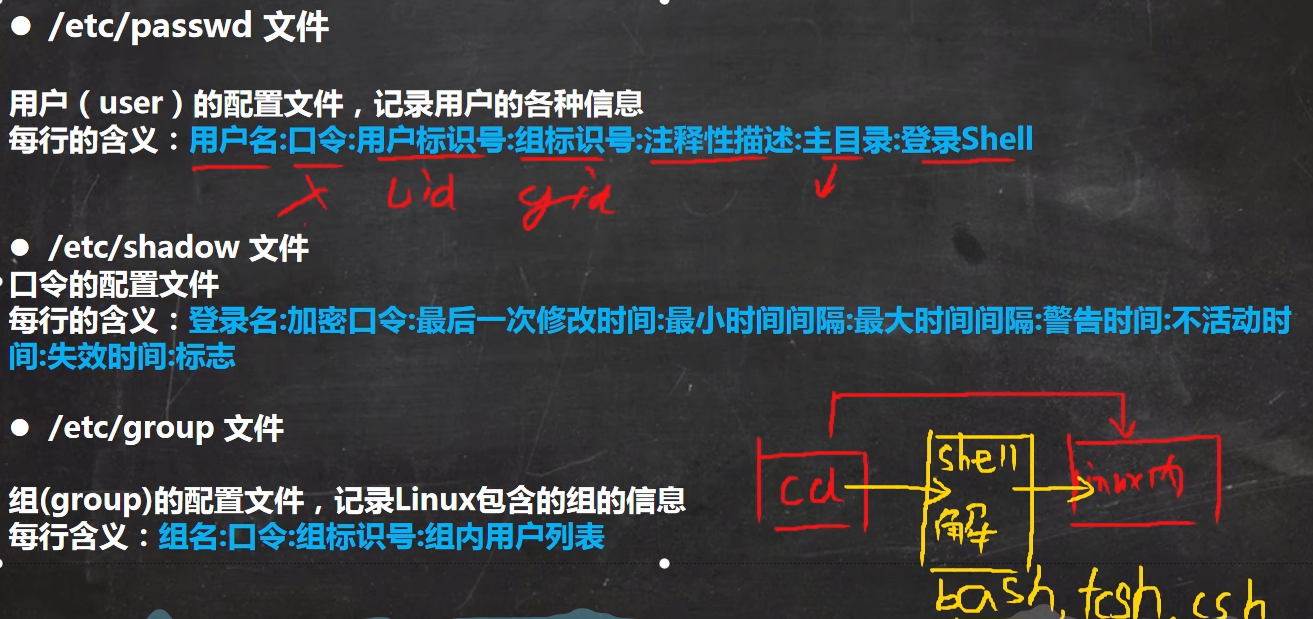 ● /etc/passwd 文件
用户（user）的配置文件，记录用户的各种信息
每行的含义：用户名:口令:用户标识号:组标识号:注释性描述:主目录:登录Shell
x uid gid
● /etc/shadow 文件
口令的配置文件
每行的含义：登录名:加密口令:最后一次修改时间:最小时间间隔:最大时间间隔:警告时间:不活动时
间:失效时间:标志
● /etc/group 文件
组(group)的配置文件，记录Linux包含的组的信息
每行含义：组名:口令:组标识号:组内用户列表
cd
shell
解
linux内
bash, tcsh, csh